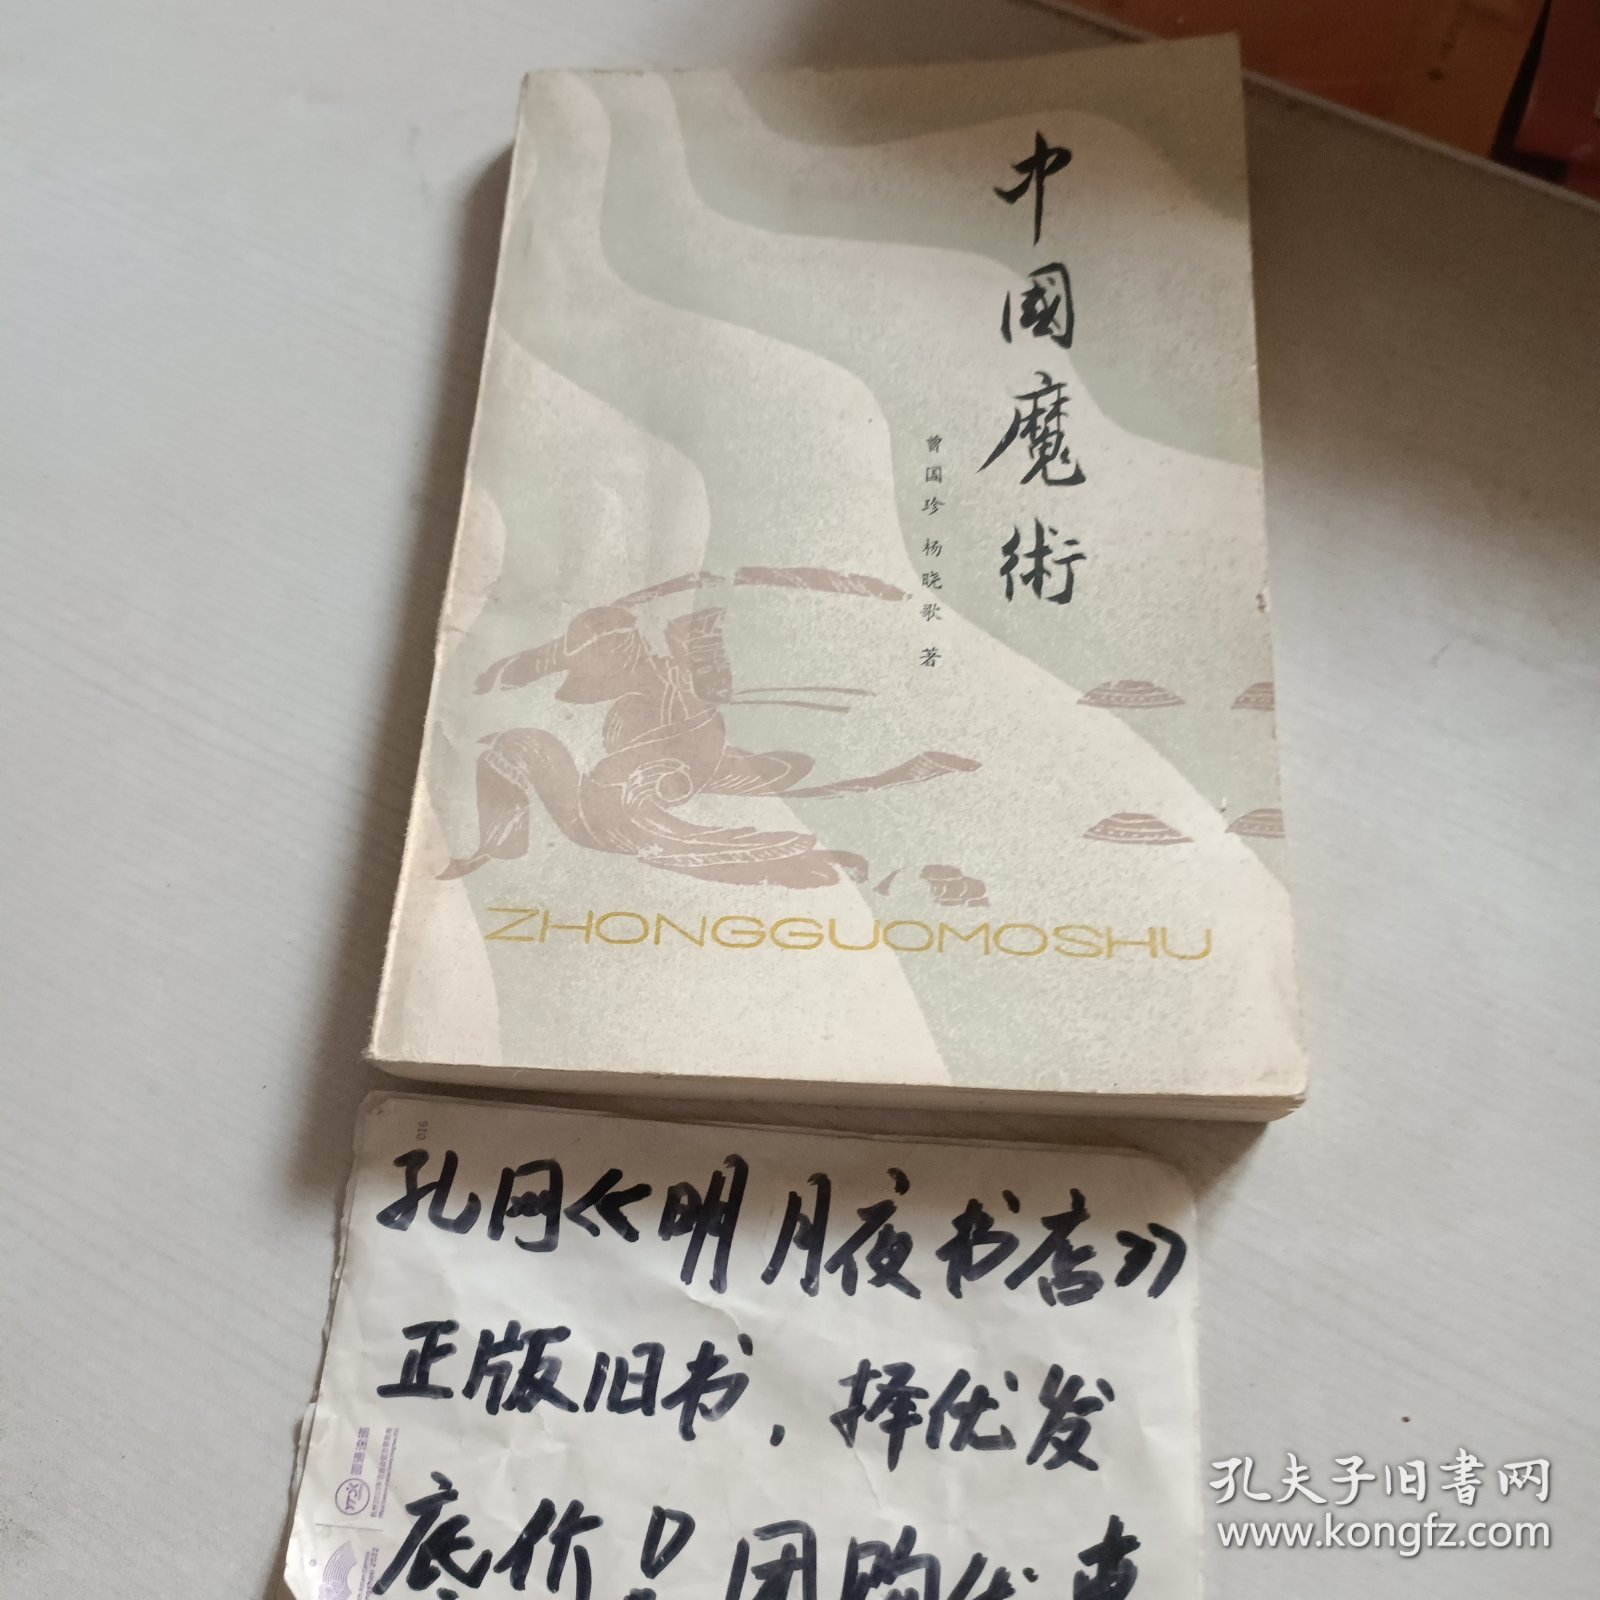 中國魔術
曾国珍 杨晓歌 著
ZHONGGUOMOSHU
016
孔网《明月夜书店》
正版旧书，择优发
底价！团购优惠
圆通速递
孔夫子旧書网
www.kongfz.com